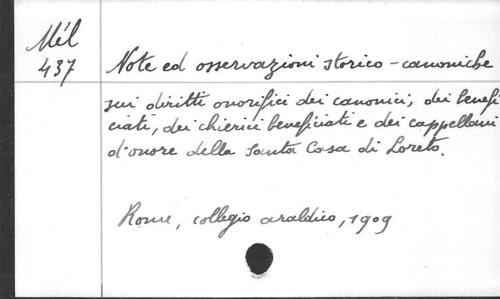 Mél
437
Note ed osservazioni storico-canoniche
sui diritti onorifici dei canonici, dei benefi
ciati, dei chierici beneficiati e dei cappellani
d'onore della Santa Casa di Loreto.
Rome, collegio araldico, 1909